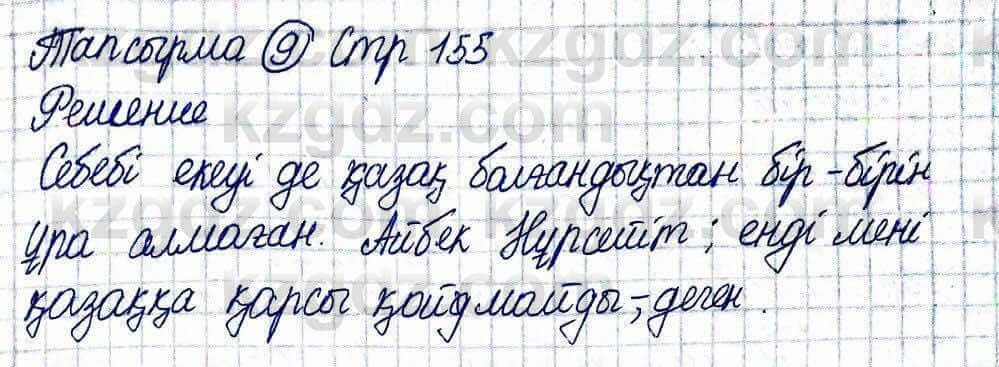 Тапсырма 9 Стр 155
Решение
Себебі екеуі де қазақ болғандықтан бір-бірін
ұра алмаған. Айбек Нұрсейіт; енді мені
қазаққа қарсы қойдмайды,-деген.
kzgdz.com